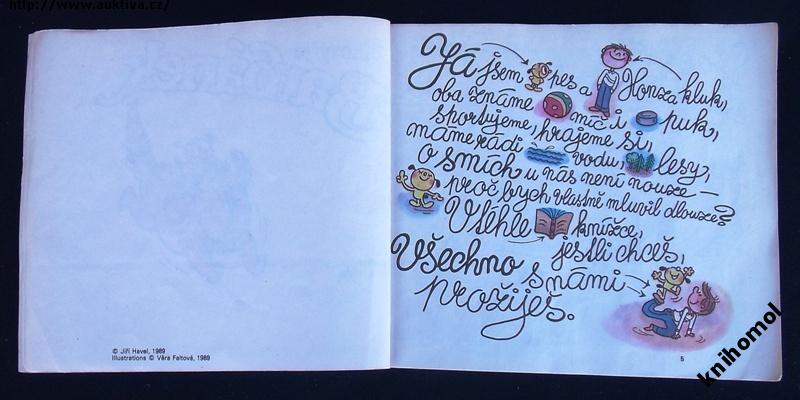 http://www.auktiva.cz/
Já jsem pes a Honza kluk,
oba známe míč i puk,
sportujeme, hrajeme si,
máme rádi vodu, lesy,
o smích u nás není nouze –
proč bych vlastně mluvil dlouze?
V téhle knížce,
jestli chceš,
Všechno s námi
prožiješ.
© Jiří Havel, 1989
Illustrations © Věra Faltová, 1989
5
knihomol